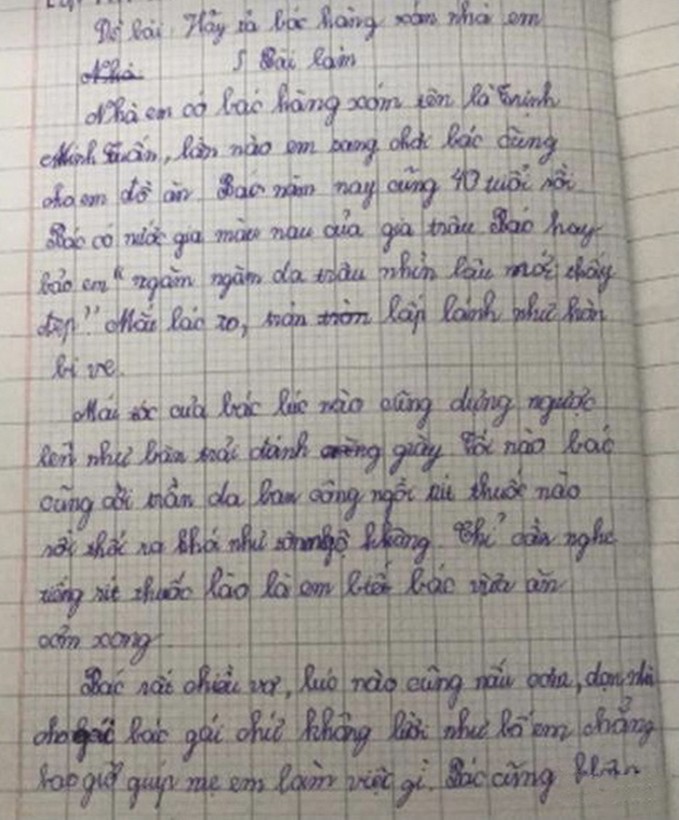 Đề bài: Hãy tả bác hàng xóm nhà em
Bài làm
Nhà em có bác hàng xóm tên là Trịnh
Minh Tuấn, lần nào em sang chơi bác cũng
cho em đồ ăn. Bác năm nay cũng 40 tuổi rồi
Bác có nước gia màu nau của gia trâu Bác hay
bảo em "ngăm ngăm da trâu nhìn lâu mới thấy
đẹp" Mắt bác to, tròn lấp lánh như hòn
bi ve.
Mái tóc của bác lúc nào cũng dựng ngược
lên như bàn trải đánh giày Tối nào bác
cũng cởi trần da ban công ngồi rít thuốc nào
rồi thổi ra khói như khổng. Chỉ cần nghe
tiếng rít thuốc lào là em biết bác vừa ăn
cơm xong
Bác rất chiều vợ, lúc nào cũng nấu cơm, dọn nhà
cho bác gái chứ không lười như bố em chẳng
bao giờ giúp mẹ em làm việc gì. Bác cũng